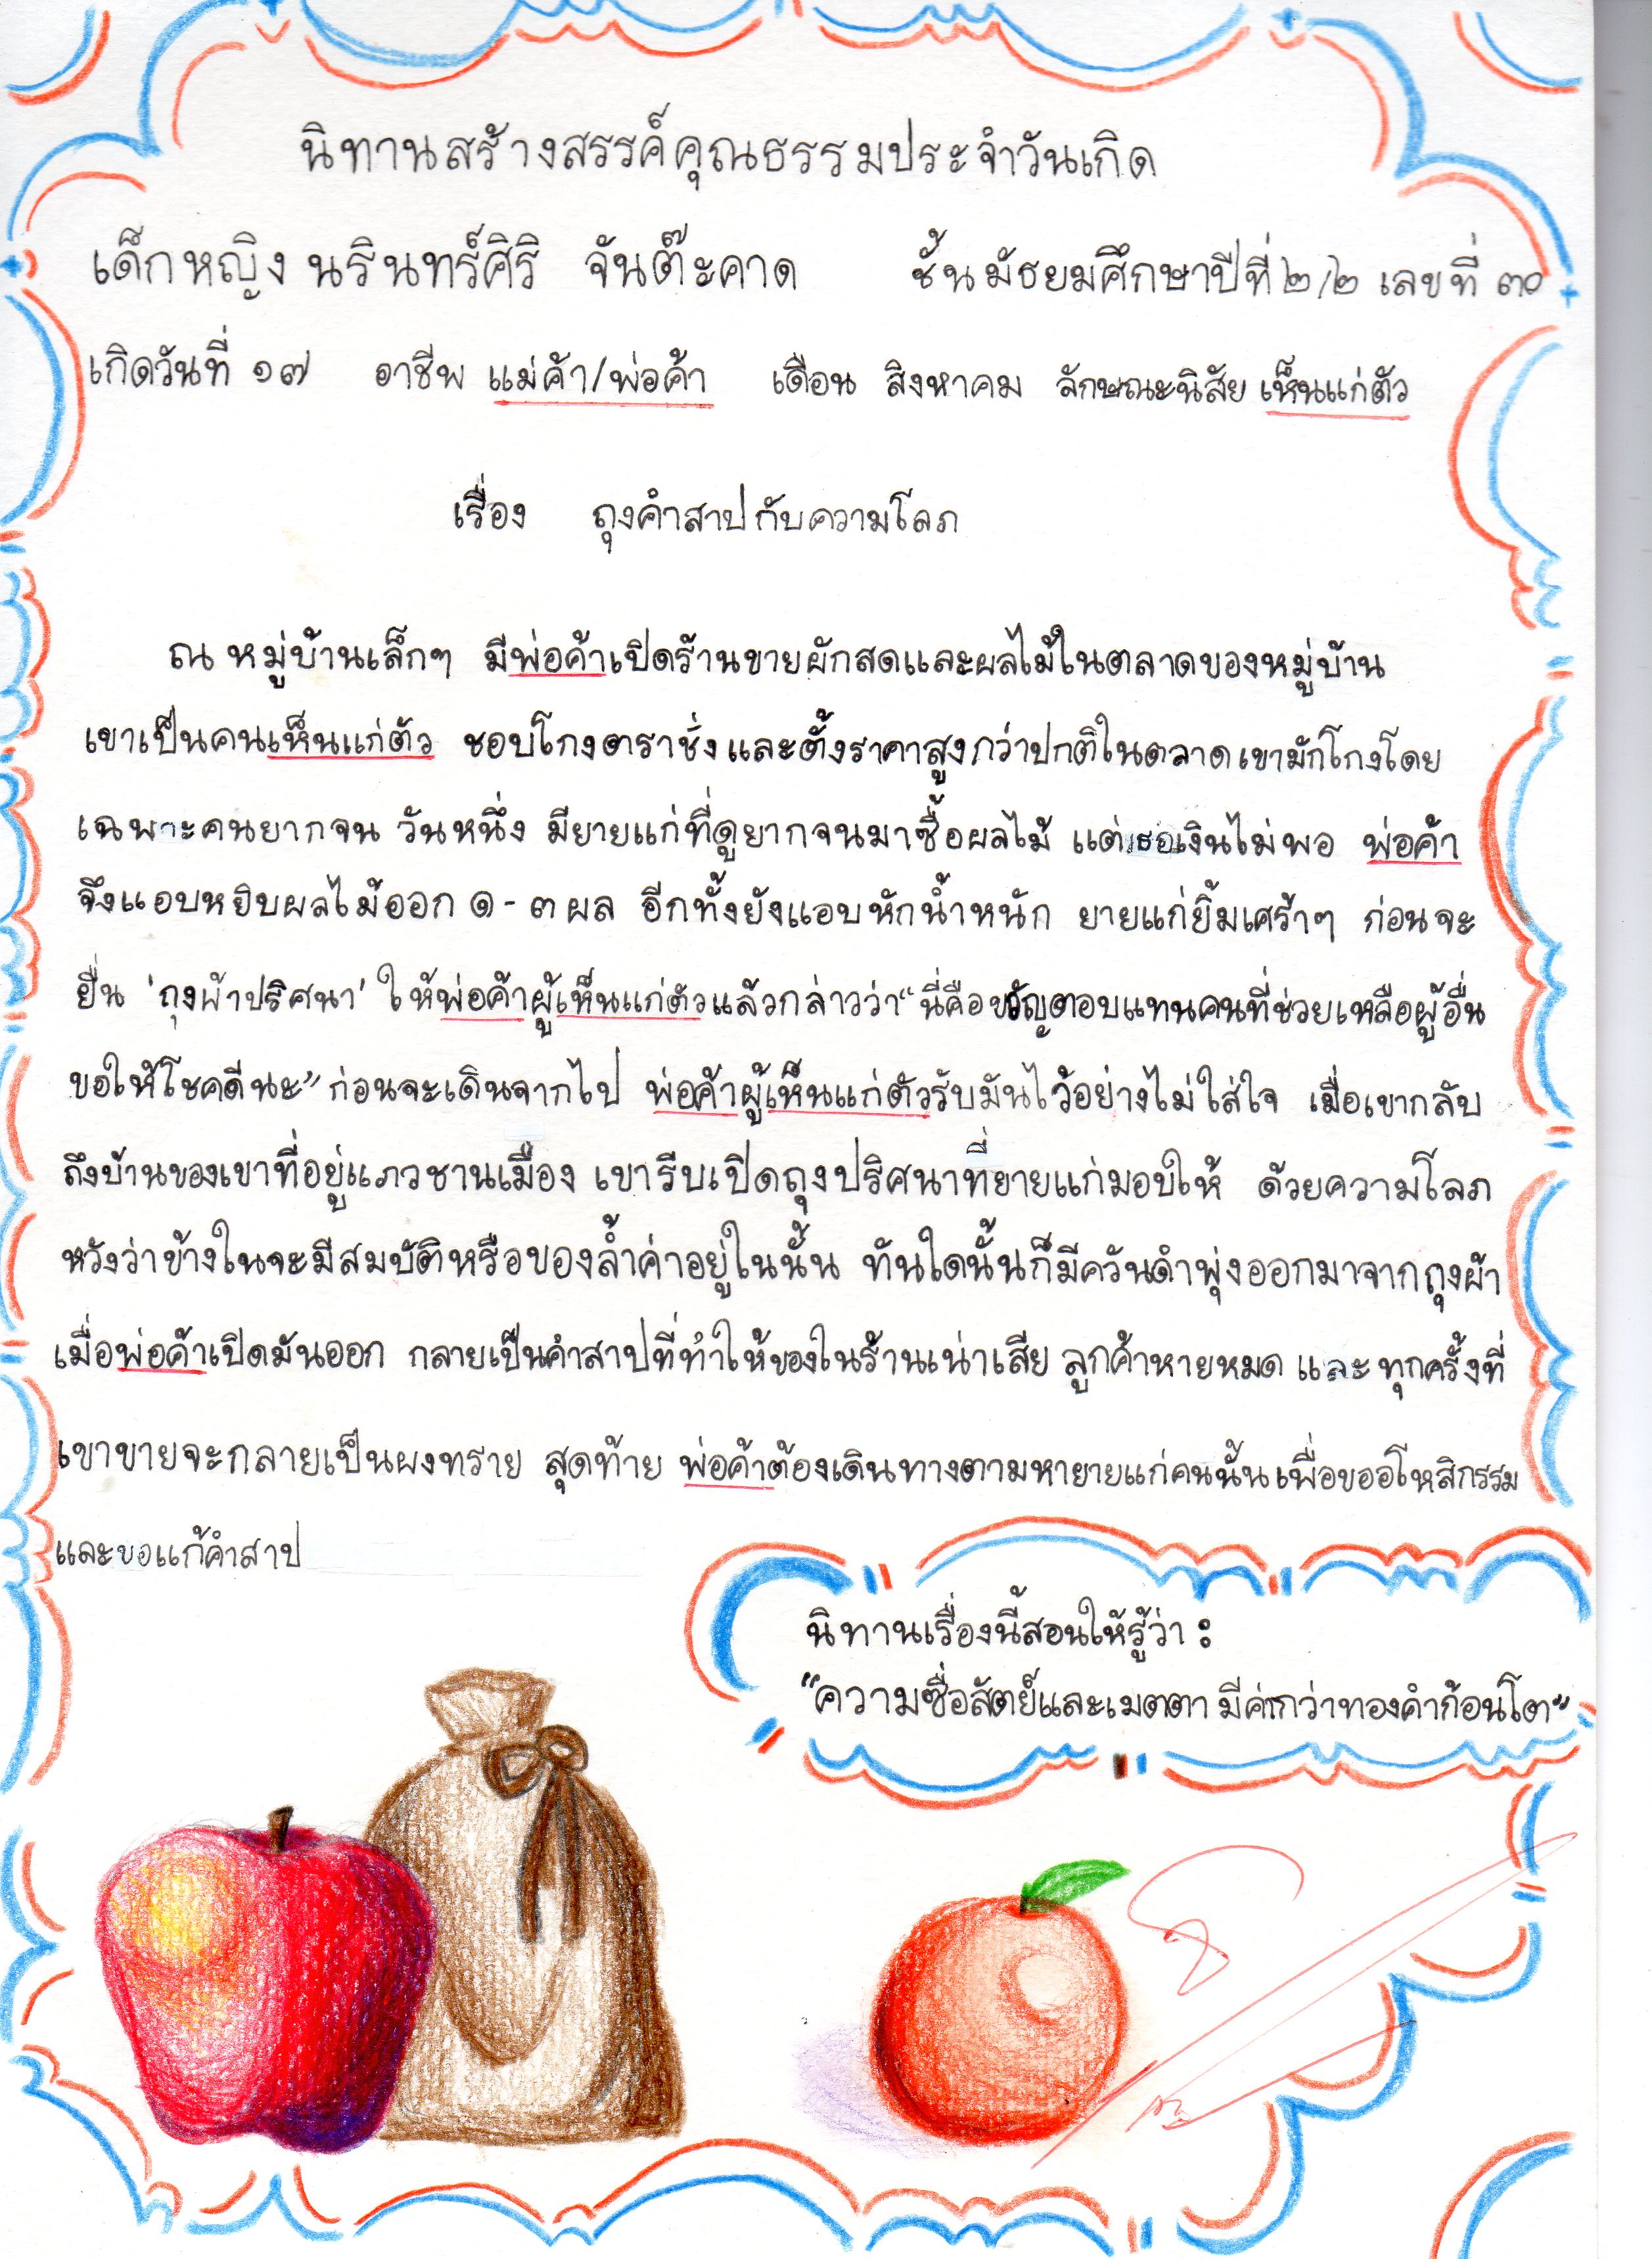 นิทานสร้างสรรค์คุณธรรมประจำวันเกิด
เด็กหญิง นรินทร์ศิริ จันต๊ะคาด ชั้นมัธยมศึกษาปีที่ ๒/๒ เลขที่ ๓๐
เกิดวันที่ ๑๗ อาชีพ แม่ค้า/พ่อค้า เดือน สิงหาคม ลักษณะนิสัย เห็นแก่ตัว
เรื่อง ถุงคำสาปกับความโลภ
ณ หมู่บ้านเล็กๆ มีพ่อค้าเปิดร้านขายผักสดและผลไม้ในตลาดของหมู่บ้าน
เขาเป็นคนเห็นแก่ตัว ชอบโกงตราชั่ง และตั้งราคาสูงกว่าปกติในตลาด เขามักโกงโดย
เฉพาะคนยากจน วันหนึ่ง มียายแก่ที่ดูยากจนมาซื้อผลไม้ แต่เธอเงินไม่พอ พ่อค้า
จึงแอบหยิบผลไม้ออก ๑ - ๓ ผล อีกทั้งยังแอบหักน้ำหนัก ยายแก่ยิ้มเศร้าๆ ก่อนจะ
ยื่น 'ถุงผ้าปริศนา' ให้พ่อค้าผู้เห็นแก่ตัวแล้วกล่าวว่า "นี่คือขวัญตอบแทนคนที่ช่วยเหลือผู้อื่น
ขอให้โชคดีนะ" ก่อนจะเดินจากไป พ่อค้าผู้เห็นแก่ตัวรับมันไว้อย่างไม่ใส่ใจ เมื่อเขากลับ
ถึงบ้านของเขาที่อยู่แถวชานเมือง เขารีบเปิดถุงปริศนาที่ยายแก่มอบให้ ด้วยความโลภ
หวังว่าข้างในจะมีสมบัติหรือของล้ำค่าอยู่ในนั้น ทันใดนั้นก็มีควันดำพุ่งออกมาจากถุงผ้า
เมื่อพ่อค้าเปิดมันออก กลายเป็นคำสาปที่ทำให้ของในร้านเน่าเสีย ลูกค้าหายหมด และ ทุกครั้งที่
เขาขายจะกลายเป็นผงทราย สุดท้าย พ่อค้าต้องเดินทางตามหายายแก่คนนั้น เพื่อขออโหสิกรรม
และขอแก้คำสาป
นิทานเรื่องนี้สอนให้รู้ว่า :
"ความซื่อสัตย์และเมตตา มีค่ากว่าทองคำก้อนโต"